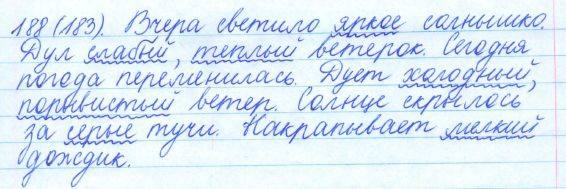 188 (183). Вчера светило яркое солнышко.
Дул слабый, теплый ветерок. Сегодня
погода переменилась. Дует холодный,
порывистый ветер. Солнце скрылось
за серые тучи. Накрапывает мелкий
дождик.